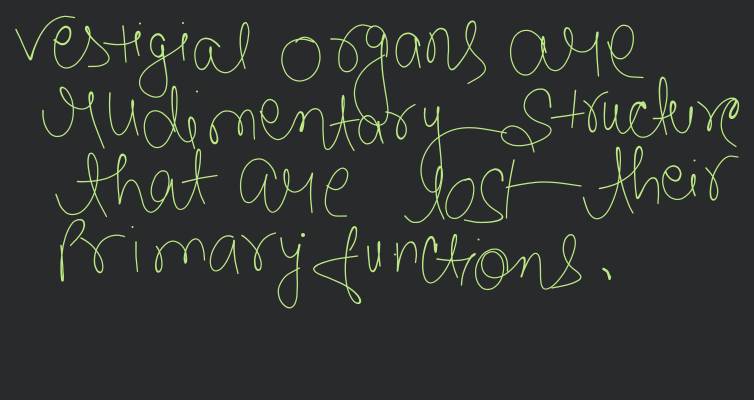 Vestigial organs are
rudimentary structure
that are lost their
Primary functions.